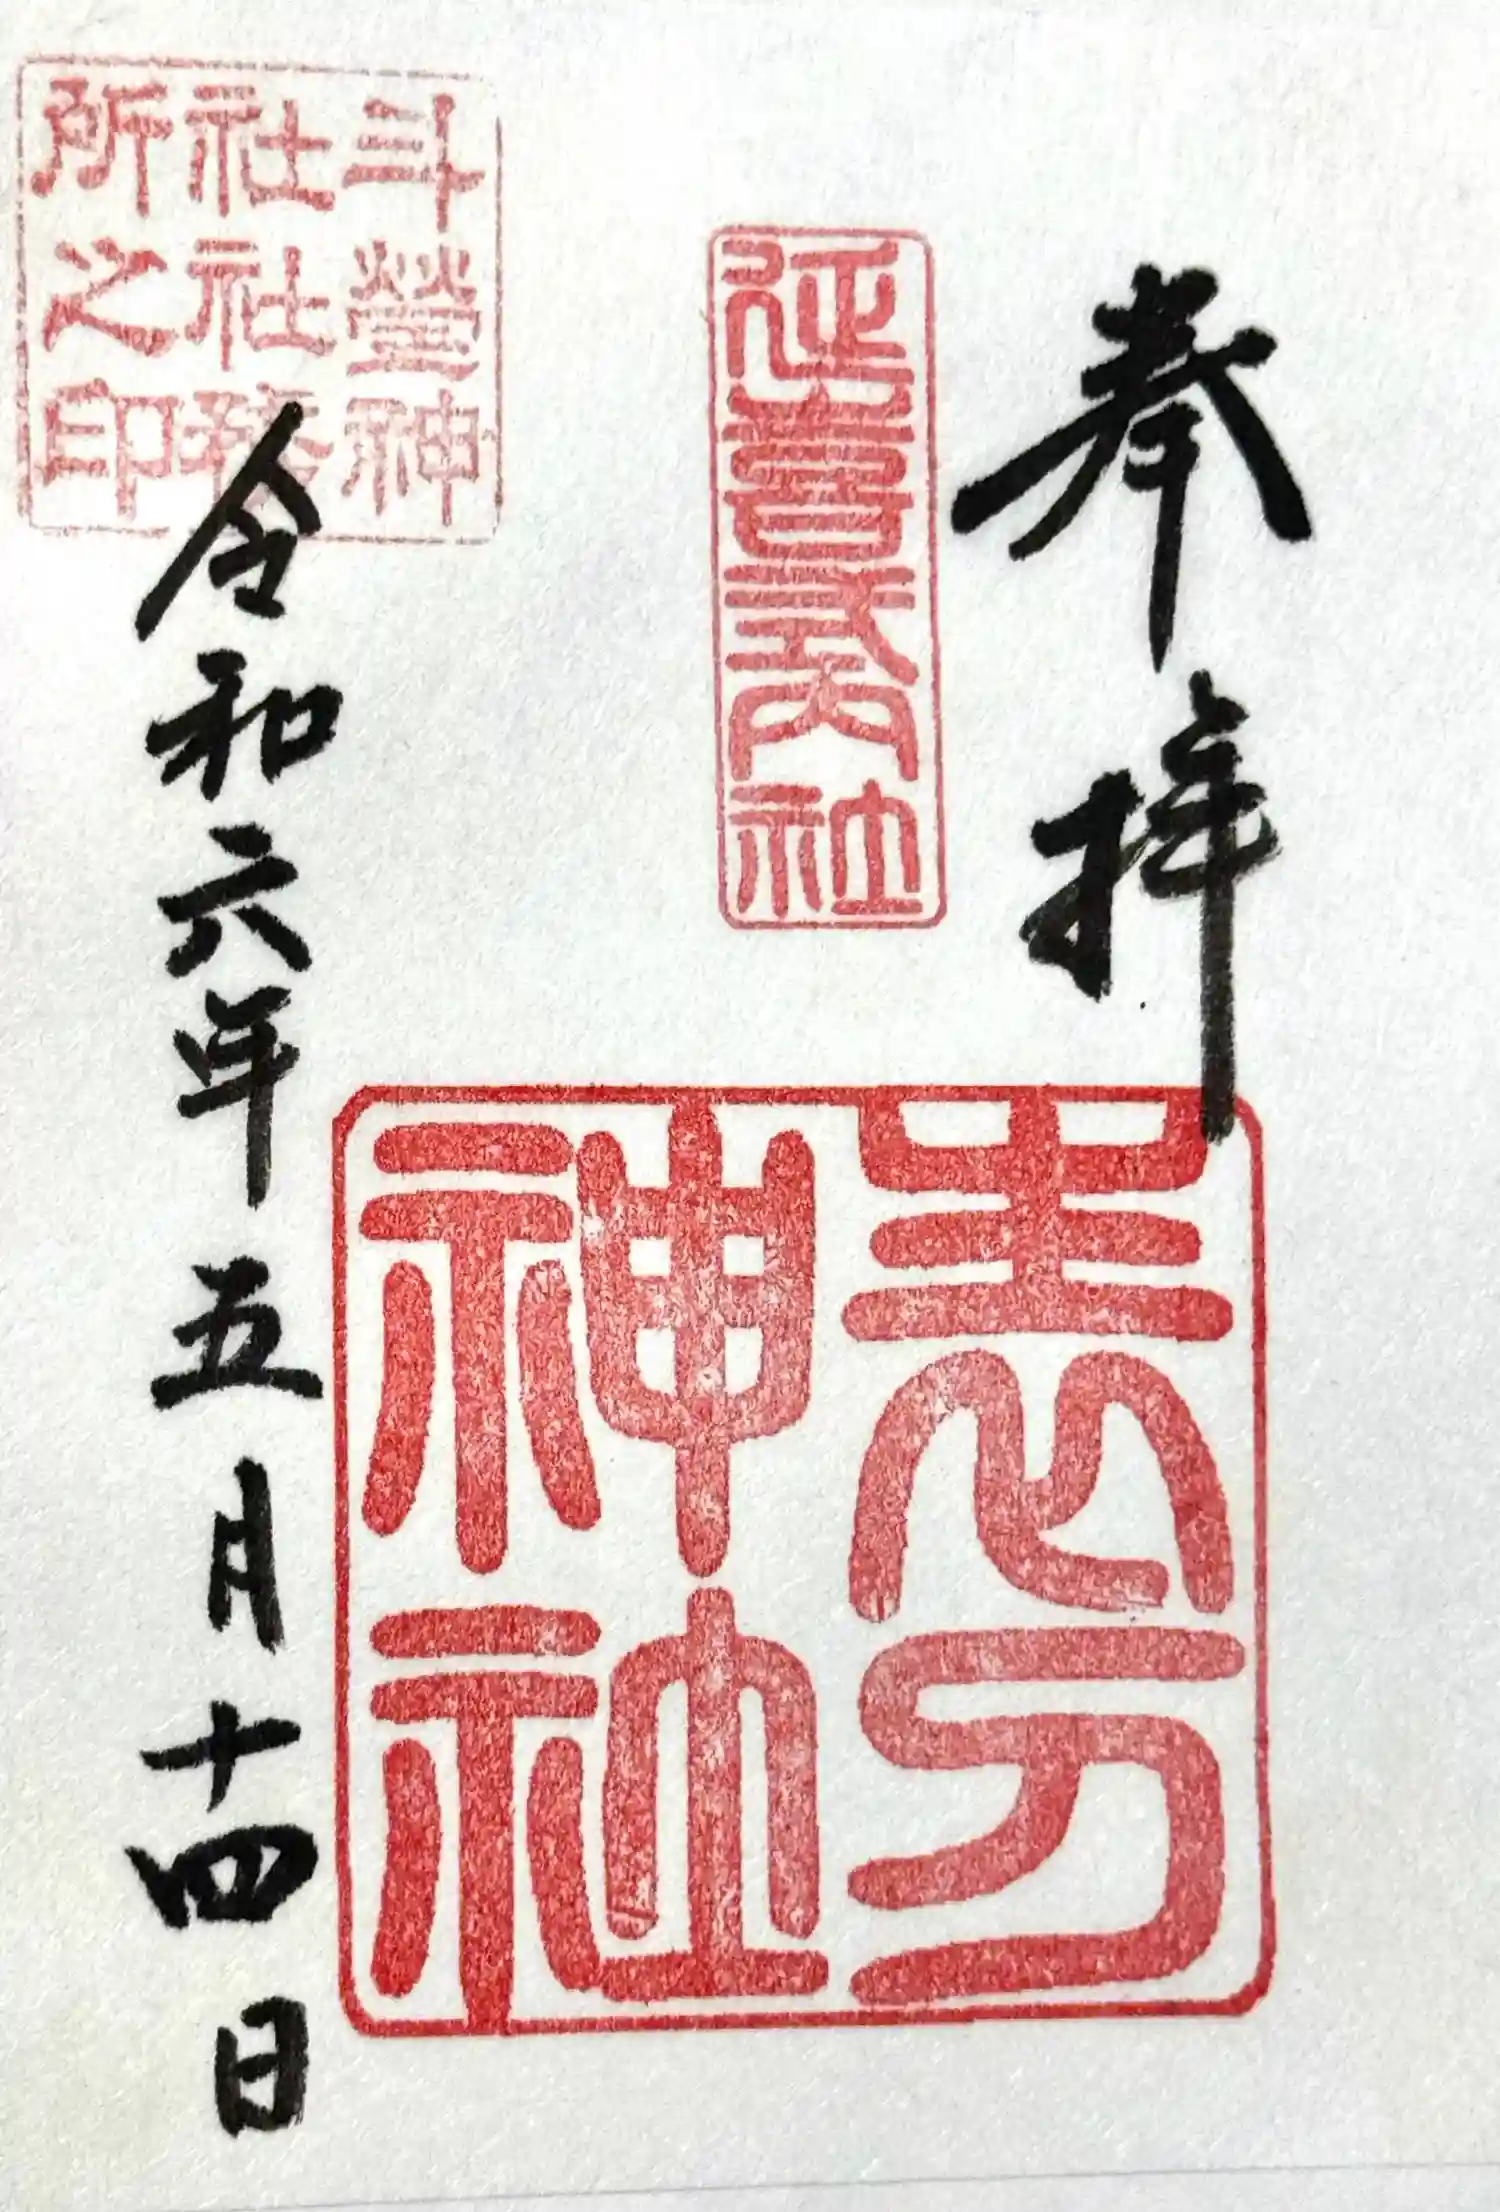 奉拝
延喜式内社
神社
斗瑩神
社社務
所之印
令和六年五月十四日